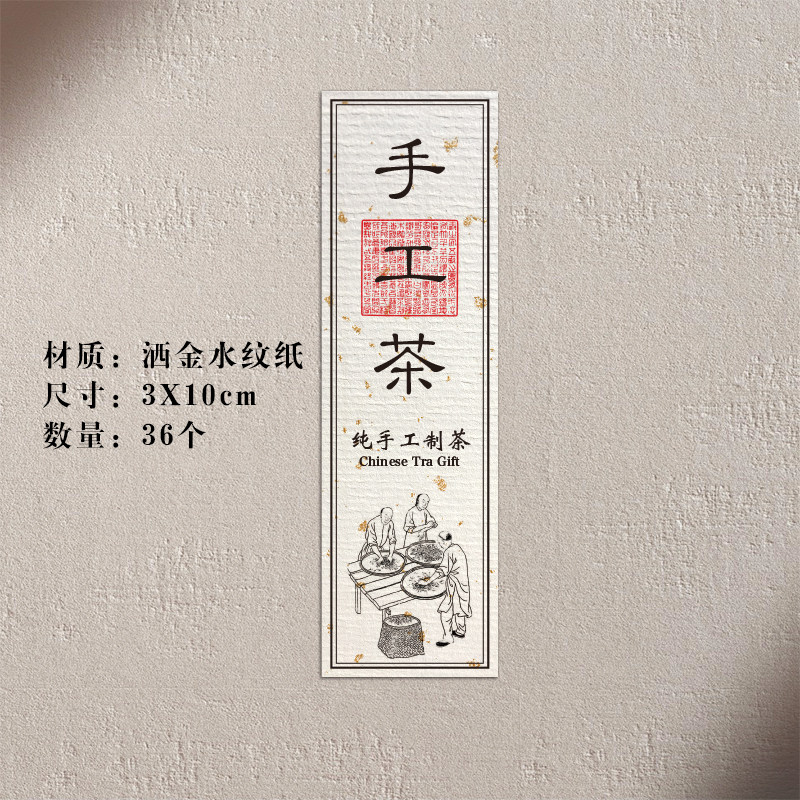 材质：洒金水纹纸
尺寸：3X10cm
数量：36个
手
工
茶
纯手工制茶
Chinese Tra Gift